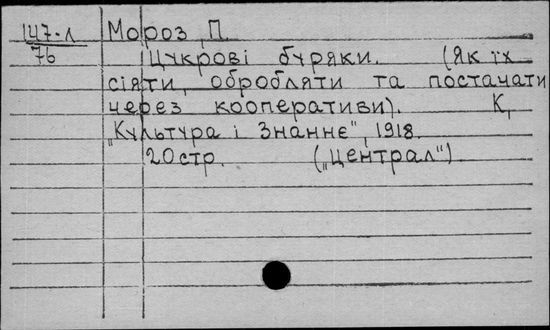 147-л Мороз, П.
76 Цукрові буряки. (Як їх
сіяти, обробляти та постачати
через кооперативи). К,
„Культура і Знаннє", 1918.
20стр. („Централ")